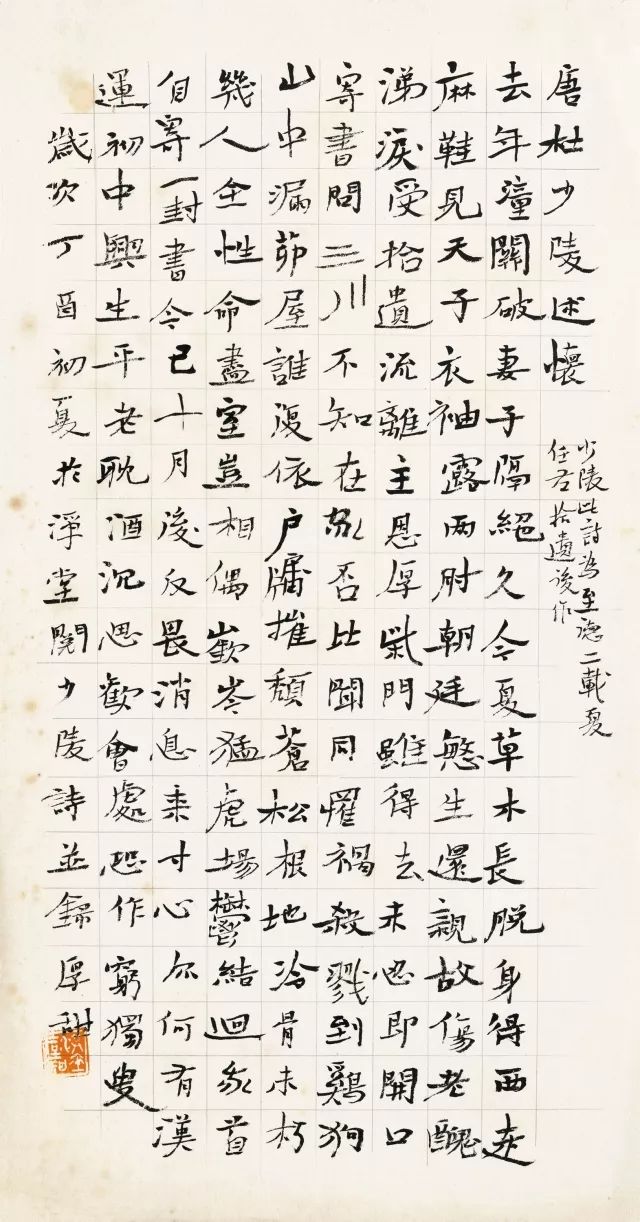 唐杜少陵述懷
少陵此詩為至德二載夏
任左拾遺後作
去年潼關破妻子隔絕久今夏草木長脫身得西走
麻鞋見天子衣袖露兩肘朝廷慜生還親故傷老醜
涕淚受拾遺流離主恩厚柴門雖得去未忍即開口
寄書問三川不知在家否比聞同罹禍殺戮到鷄狗
山中漏茆屋誰復依户牖摧頹蒼松根地冷骨未朽
幾人全性命盡室豈相偶嶔岑猛虎場鬱結迴我首
自寄一封書今已十月後反畏消息来寸心亦何有漢
運初中興生平老耽酒沉思歡會處恐作窮獨叟
歲次丁酉初夏於淨堂閱少陵詩並錄厚甜